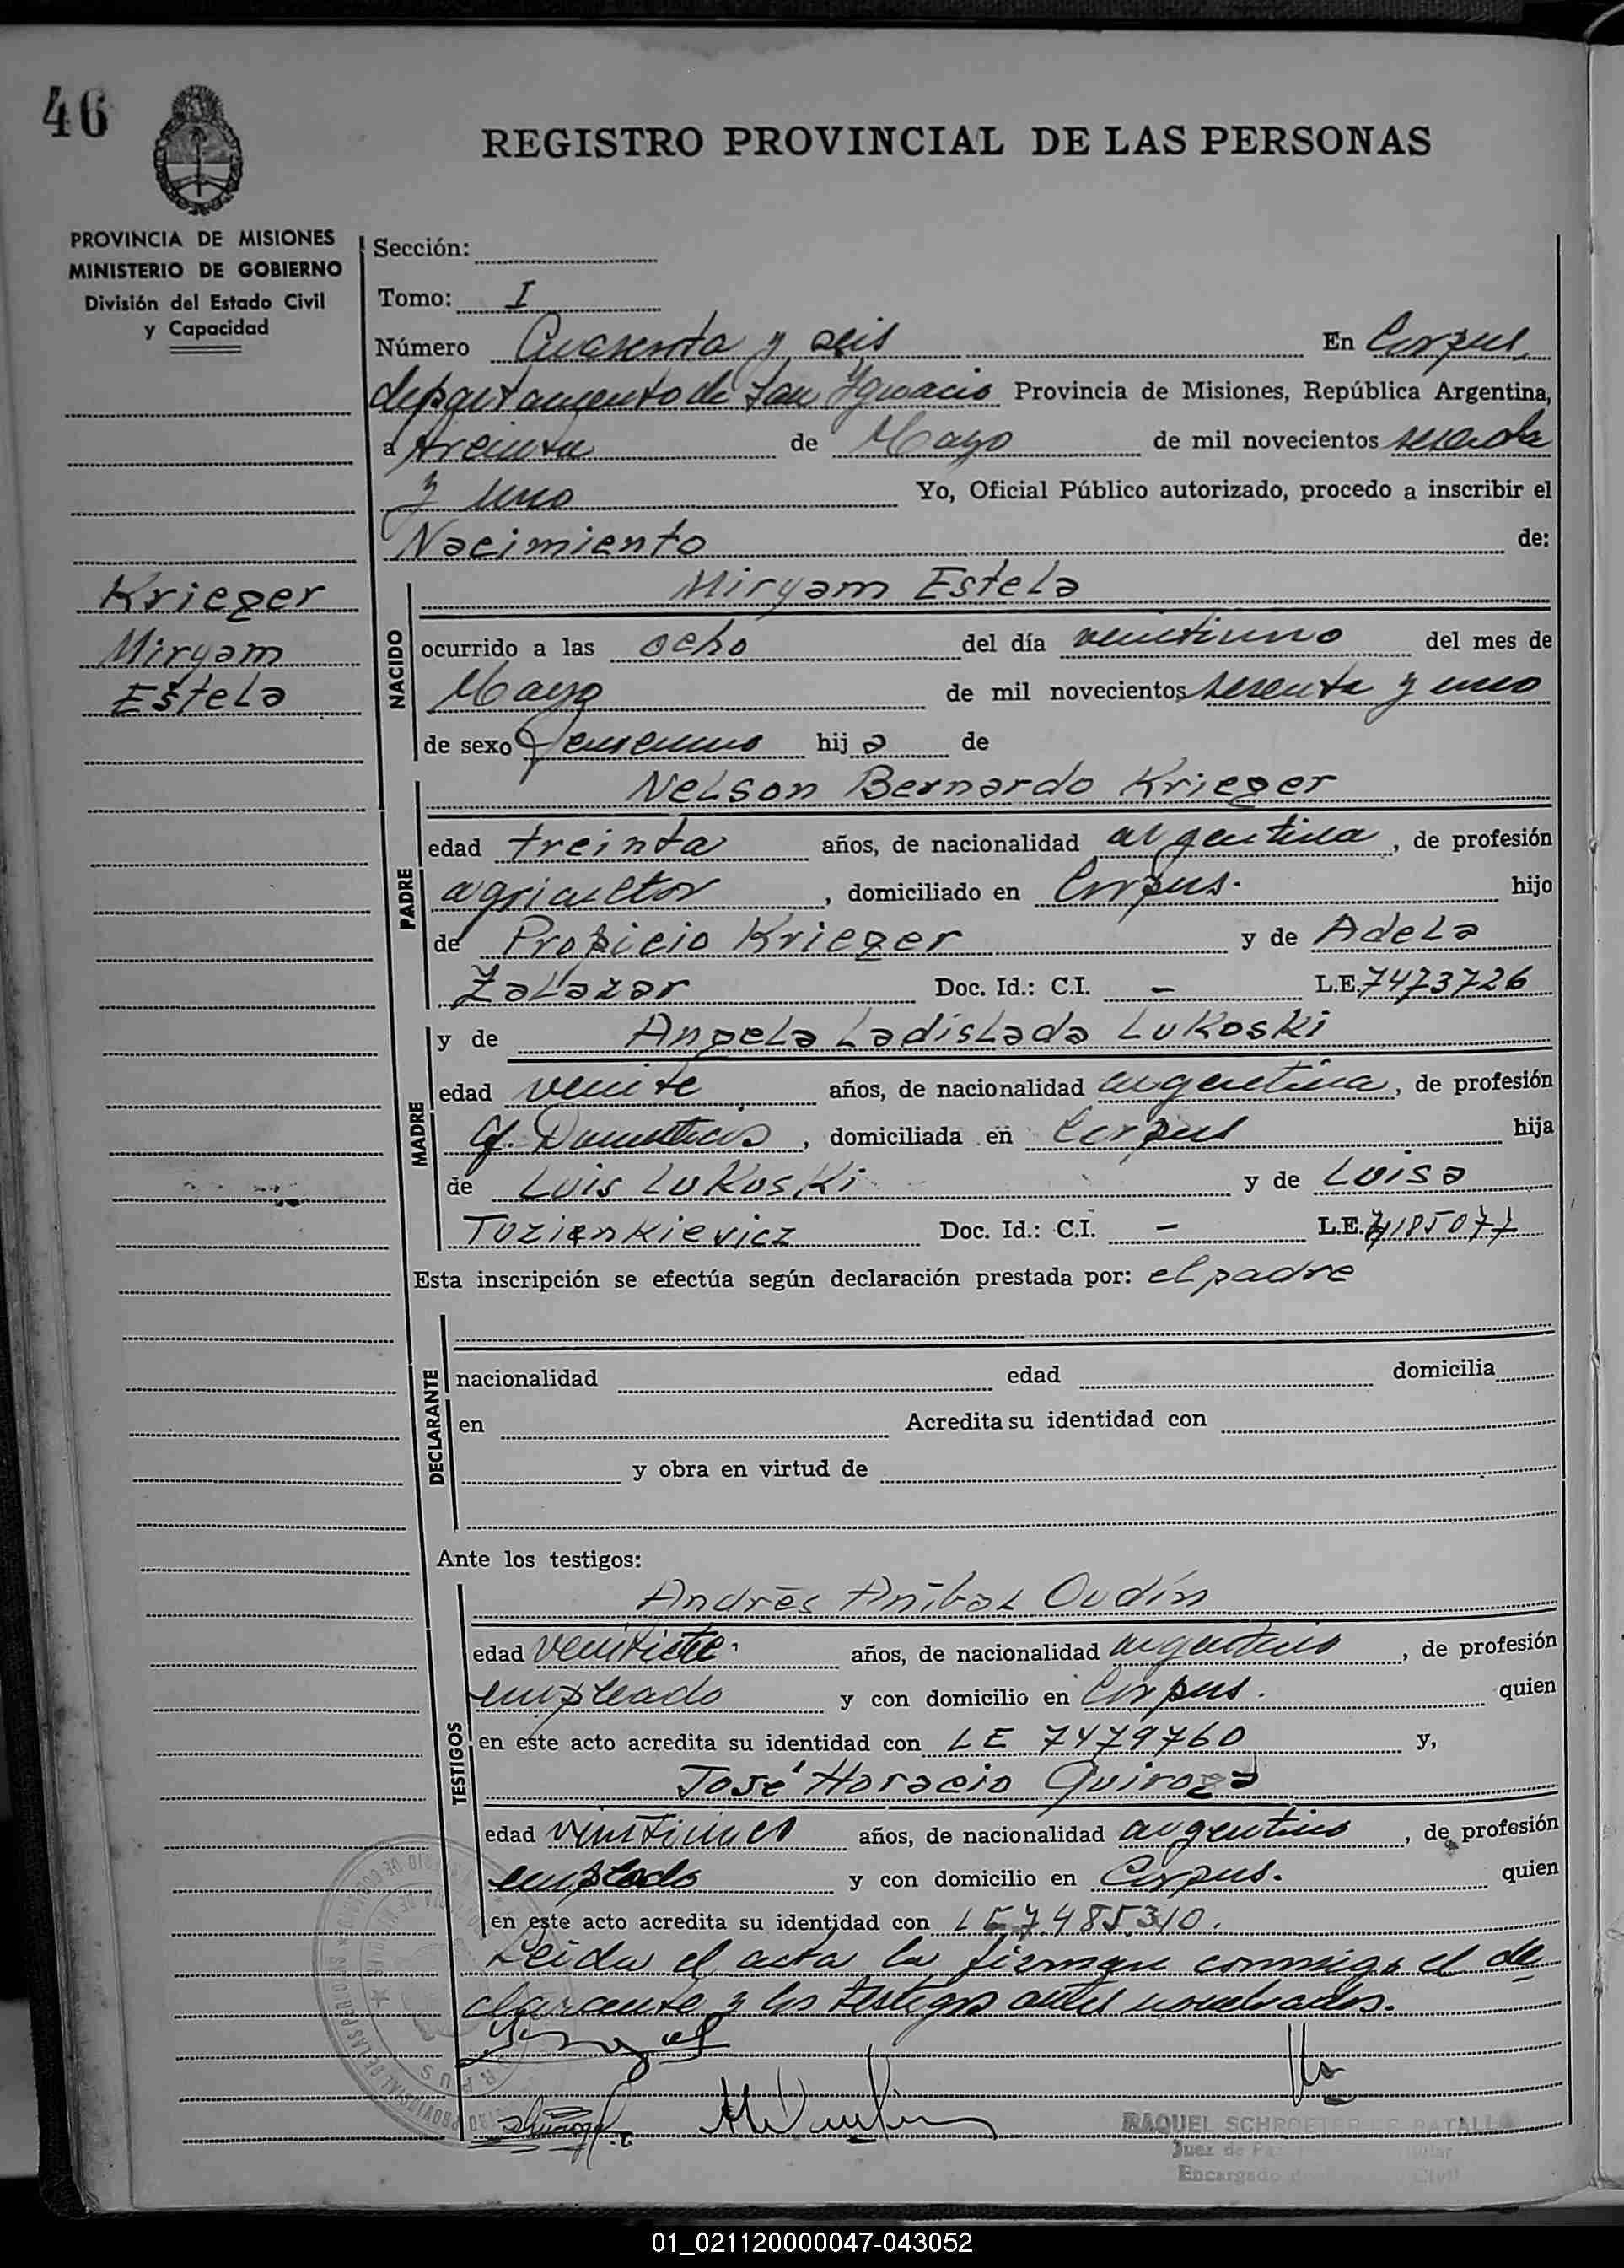 46
REGISTRO PROVINCIAL DE LAS PERSONAS
PROVINCIA DE MISIONES
MINISTERIO DE GOBIERNO
División del Estado Civil
y Capacidad
Sección:
Tomo: I
Número Cuarenta y seis En Corpus
departamento de San Ignacio Provincia de Misiones, República Argentina,
a treinta de Mayo de mil novecientos sesenta
y uno Yo, Oficial Público autorizado, procedo a inscribir el
Nacimiento de:
Krieger
Miryam
Estela
NACIDO
Miryam Estela
ocurrido a las ocho del día veintiuno del mes de
Mayo de mil novecientos sesenta y uno
de sexo femenino hija de
PADRE
Nelson Bernardo Krieger
edad treinta años, de nacionalidad argentina, de profesión
agricultor, domiciliado en Corpus. hijo
de Propicio Krieger y de Adela
Zalazar Doc. Id.: C.I. - L.E. 7473726
MADRE
y de Angela Ladislada Lukoski
edad veinte años, de nacionalidad argentina, de profesión
q. Domesticos, domiciliada en Corpus hija
de Luis Lukoski y de Luisa
Tuziankievicz Doc. Id.: C.I. - L.E. 4185077
Esta inscripción se efectúa según declaración prestada por: el padre
DECLARANTE
nacionalidad edad domicilia
en Acredita su identidad con
y obra en virtud de
Ante los testigos:
TESTIGOS
Andrés Aníbal Oudín
edad veintisiete años, de nacionalidad argentino, de profesión
empleado y con domicilio en Corpus. quien
en este acto acredita su identidad con LE 7479760 y,
José Horacio Quiroga
edad años, de nacionalidad argentino, de profesión
empleado y con domicilio en Corpus. quien
en este acto acredita su identidad con LE 7.485310.
Leida el acta la firman conmigo el de
clarante y los testigos antes nombrados.
RAQUEL SCHROETER DE BATALLA
Juez de Paz
Encargado
01_021120000047-043052